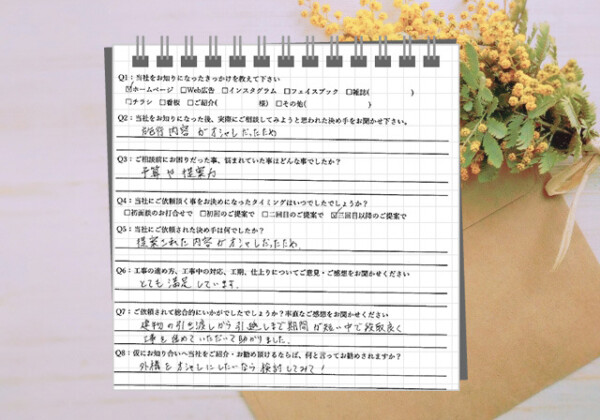 Q1:当社をお知りになったきっかけを教えて下さい
☑ホームページ □Web広告 □インスタグラム □フェイスブック □雑誌( )
□チラシ □看板 □ご紹介( 様) □その他( )
Q2:当社をお知りになった後、実際にご相談してみようと思われた決め手をお聞かせ下さい。
内容がオシャレだったため
Q3:ご相談前にお困りだった事、悩まれていた事はどんな事でしたか?
予算や提案力
Q4:当社にご依頼頂く事をお決めになったタイミングはいつでしたでしょうか?
□初面談のお打合せで □初回のご提案で □二回目のご提案で ☑三回目以降のご提案で
Q5:当社にご依頼された決め手は何でしたか?
提案された内容がオシャレだったため。
Q6:工事の進め方、工事中の対応、工期、仕上りについてご意見・ご感想をお聞かせください
とても満足しています。
Q7:ご依頼されて総合的にいかがでしたでしょうか?率直なご感想をお聞かせください
建物の引き渡しから引越しまで期間が短い中で段取良く
工事を進めていただいて助かりました。
Q8:仮にお知り合いへ当社をご紹介・お勧め頂けるならば、何と言ってお勧めされますか?
外構をオシャレにしたいなら検討してみて!